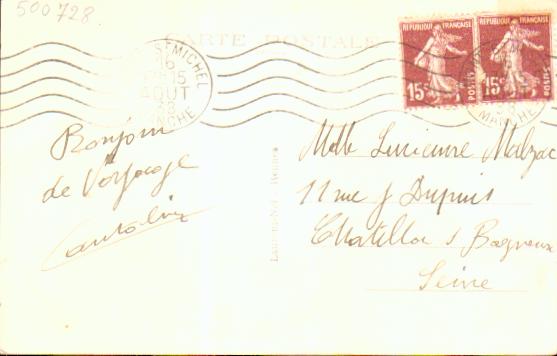 500728
CARTE POSTALE
ST MICHEL
16
15
AOUT
38
MANCHE
RÉPUBLIQUE FRANÇAISE
15c
POSTES
RÉPUBLIQUE FRANÇAISE
15c
POSTES
MANCHE
Bonjour
de Voyage
Melle Lucienne Malzac
11 rue J Dupuis
Chatillon s Bagneux
Seine
Rennes